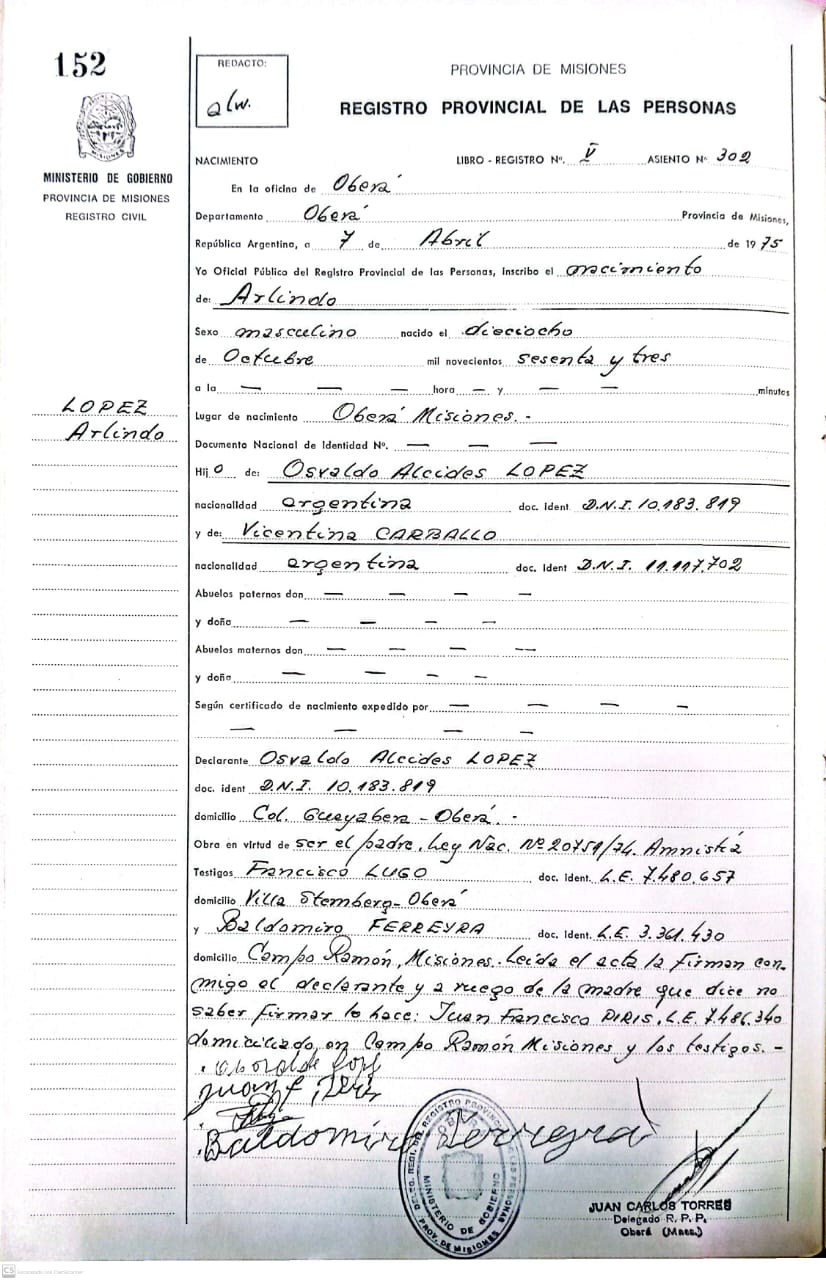 152
REDACTO:
alw.
PROVINCIA DE MISIONES
REGISTRO PROVINCIAL DE LAS PERSONAS
MINISTERIO DE GOBIERNO
PROVINCIA DE MISIONES
REGISTRO CIVIL
NACIMIENTO LIBRO - REGISTRO Nº. V ASIENTO Nº 302
En la oficina de Oberá
Departamento Oberá Provincia de Misiones,
República Argentina, a 7 de Abril de 1975
Yo Oficial Público del Registro Provincial de las Personas, Inscribo el nacimiento
de: Arlindo
Sexo masculino nacido el dieciocho
de Octubre mil novecientos sesenta y tres
a la — — — hora — y — — minutos
LOPEZ
Arlindo
Lugar de nacimiento Oberá Misiones. -
Documento Nacional de Identidad Nº. — — —
Hijo de: Osvaldo Alcides LOPEZ
nacionalidad argentina doc. Ident D.N.I. 10.183.819
y de: Vicentina CARBALLO
nacionalidad argentina doc. Ident D.N.I. 11.117.702
Abuelos paternos don — — — —
y doña — — — —
Abuelos maternos don — — — —
y doña — — — —
Según certificado de nacimiento expedido por — — —
— — — —
Declarante Osvaldo Alcides LOPEZ
doc. ident D.N.I. 10.183.819
domicilio Col. Guayabera - Oberá. -
Obra en virtud de ser el padre, Ley Nac. Nº 20751/74. Amnistía
Testigos Francisco LUGO doc. Ident. L.E. 7.480.657
domicilio Villa Stemberg - Oberá
y Baldomiro FERREYRA doc. Ident. L.E. 3.361.430
domicilio Campo Ramón, Misiones. Leída el acta la firman con-
migo el declarante y a ruego de la madre que dice no
saber firmar lo hace: Juan Francisco PIRIS, L.E. 7.486.340
domiciliado en Campo Ramón Misiones y los testigos. -
Juan F. Piris
Baldomiro Ferreyra
DELEG. REGI. DEL REGISTRO PROVINCIAL DE LAS PERSONAS
OBERA
MINISTERIO DE GOBIERNO
PROV. DE MISIONES
JUAN CARLOS TORRES
Delegado R. P. P.
Oberá (Mnes.)
CS Escaneado con CamScanner